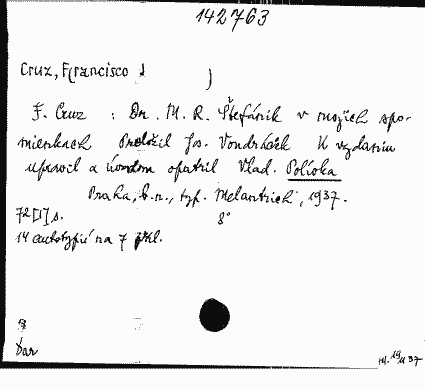 142763
Cruz, F(rancisco )
F. Cruz : Dr. M. R. Štefánik v mojich spo-
mienkach Preložil Jos. Vondráček K vydaniu
upravil a úvodom opatril Vlad. Polívka
Praha, b.n., typ. Melantrich, 1937.
72[1] s. 8°
14 autotypií na 7 příl.
Dar
37